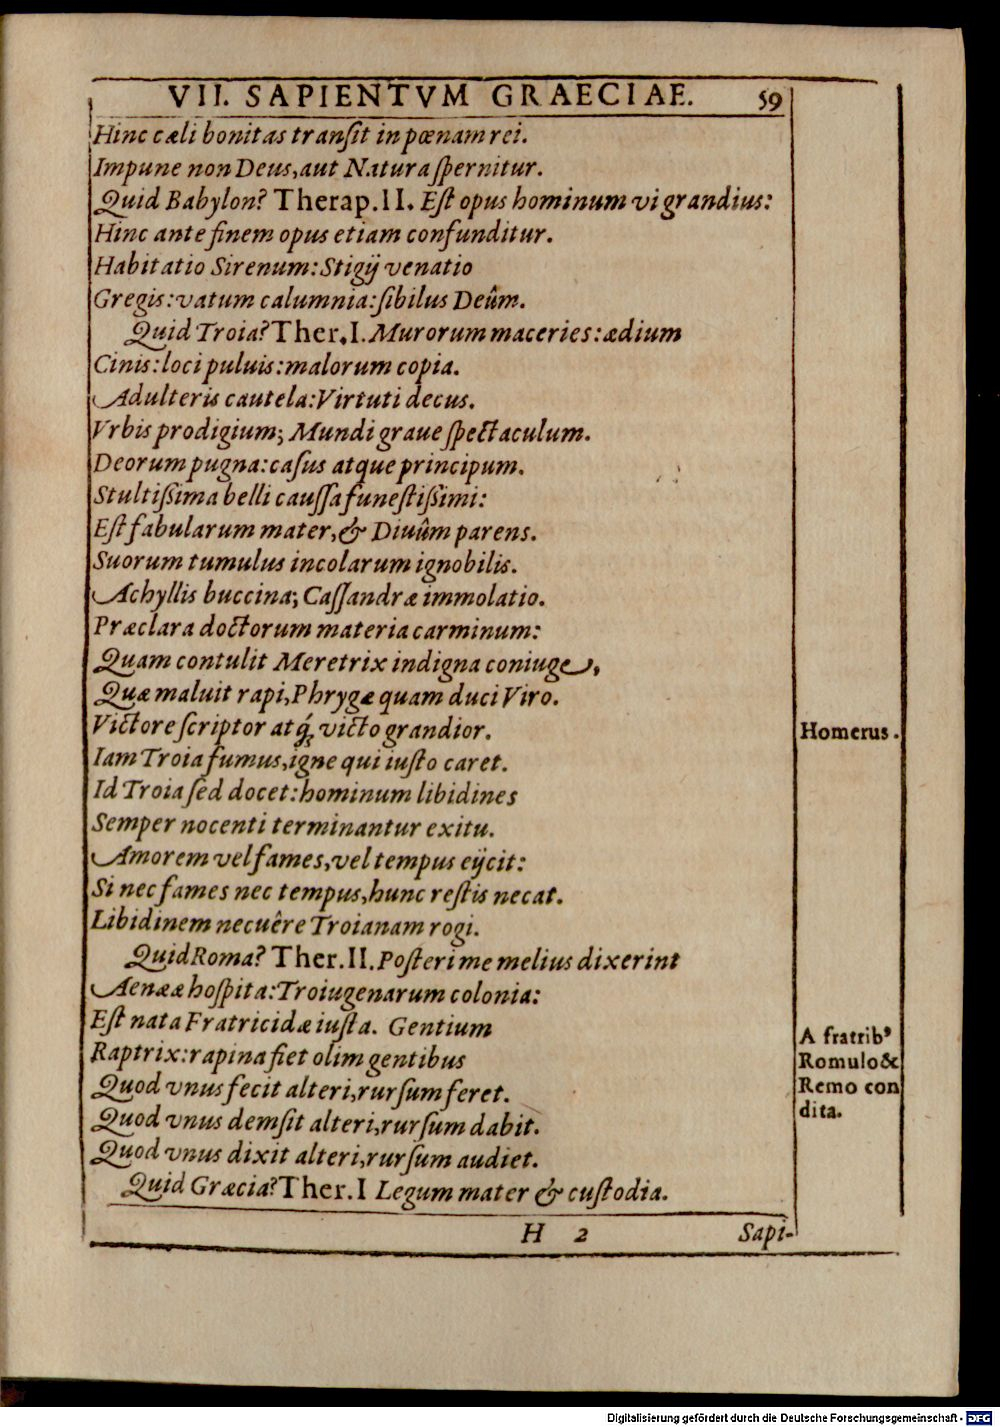 VII. SAPIENTVM GRAECIAE. 59
Hinc cæli bonitas tranſit in pœnam rei.
Impune non Deus, aut Natura ſpernitur.
Quid Babylon? Therap. II. Eſt opus hominum vi grandius:
Hinc ante finem opus etiam confunditur.
Habitatio Sirenum: Stigij venatio
Gregis: vatum calumnia: ſibilus Deûm.
Quid Troia? Ther. I. Murorum maceries: ædium
Cinis: loci puluis: malorum copia.
Adulteris cautela: Virtuti decus.
Vrbis prodigium; Mundi graue ſpectaculum.
Deorum pugna: caſus atque principum.
Stultiſsima belli cauſſa funeſtiſsimi:
Eſt fabularum mater, & Diuûm parens.
Suorum tumulus incolarum ignobilis.
Achyllis buccina; Caſſandræ immolatio.
Præclara doctorum materia carminum:
Quam contulit Meretrix indigna coniuge,
Quæ maluit rapi, Phrygæ quam duci Viro.
Victore ſcriptor atq́ꝫ victo grandior.
Homerus.
Iam Troia fumus, igne qui iuſto caret.
Id Troia ſed docet: hominum libidines
Semper nocenti terminantur exitu.
Amorem vel fames, vel tempus eijcit:
Si nec fames nec tempus, hunc reſtis necat.
Libidinem necuêre Troianam rogi.
Quid Roma? Ther. II. Poſteri me melius dixerint
Aenææ hoſpita: Troiugenarum colonia:
Eſt nata Fratricidæ iuſta. Gentium
Raptrix: rapina fiet olim gentibus
Quod vnus fecit alteri, rurſum feret.
Quod vnus demſit alteri, rurſum dabit.
Quod vnus dixit alteri, rurſum audiet.
A fratribꝰ
Romulo &
Remo con
dita.
Quid Græcia? Ther. I Legum mater & cuſtodia.
H 2 Sapi-
Digitalisierung gefördert durch die Deutsche Forschungsgemeinschaft - DFG